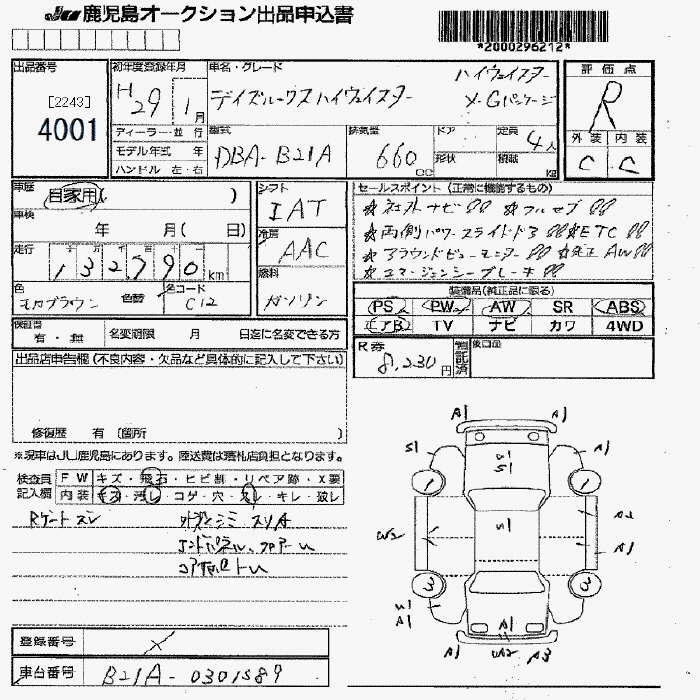 JU 鹿児島オークション出品申込書
*2000296212*
出品番号
[2243]
4001
初年度登録年月
H29 1月
ディーラー・並行
モデル年式 年
ハンドル 左・右
車名・グレード
ハイウェイスター
デイズルークスハイウェイスター X-Gパッケージ
型式
DBA-B21A
排気量
660 CC
ドア
形状
定員
4人
積載
KG
評価点
R
外装 内装
C C
車歴
自家用( )
車検
年 月( 日)
走行
132790 km
色
モカブラウン
色替
色コード
C12
シフト
IAT
冷房
AAC
燃料
ガソリン
セールスポイント (正常に機能するもの)
☆社外ナビ ☆フルセグ
☆両側パワースライドドア ☆ETC
☆アラウンドビューモニター ☆純正AW
☆エマージェンシーブレーキ
装備品(純正品に限る)
PS PW AW SR ABS
エアB TV ナビ カワ 4WD
保証書
有・無
名変期限 月 日迄に名変できる方
R券
8,230円
後日品
出品店申告欄(不良内容・欠品など具体的に記入して下さい)
修復歴 有 〔箇所
※現車はJU鹿児島にあります。陸送費は落札店負担となります。
検査員
記入欄
FW キズ・飛石・ヒビ割・リペア跡・X要
内装 キズ・汚レ・コゲ・穴・スレ・キレ・破レ
Rゲートズレ
エンドパネル、フロアーU
A1 A1
S1 A1
U1
S1
U1
A2
A1
UA2
3 3
U1
A1
A1
A1 UA2 A3
登録番号
X
車台番号
B21A-0301589